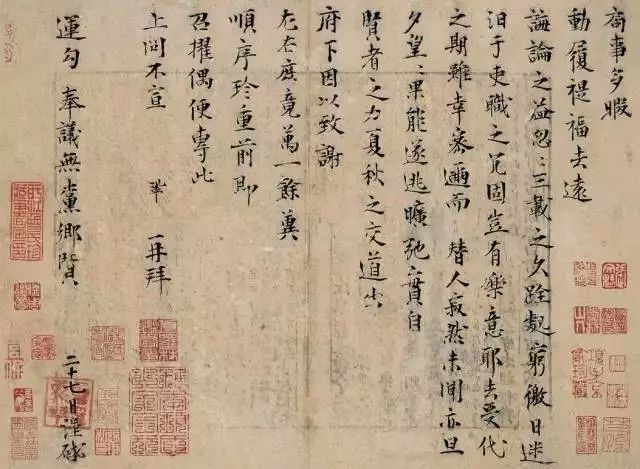 局事多暇
動履禔福去遠
誨論之益忽忽三載之久跧處窮徼日迷
汨于吏職之冗固豈有樂意耶去受代
之期雖幸密邇而替人寂然未聞亦旦
夕望望果能遂逃曠弛實自
賢者之力夏秋之交道出
府下因以致謝
左右庶竟萬一餘冀
順序珍重前即
召擢偶便專此
上問不宣 鞏 再拜
運勾奉議無黨鄉賢 二十七日謹啟